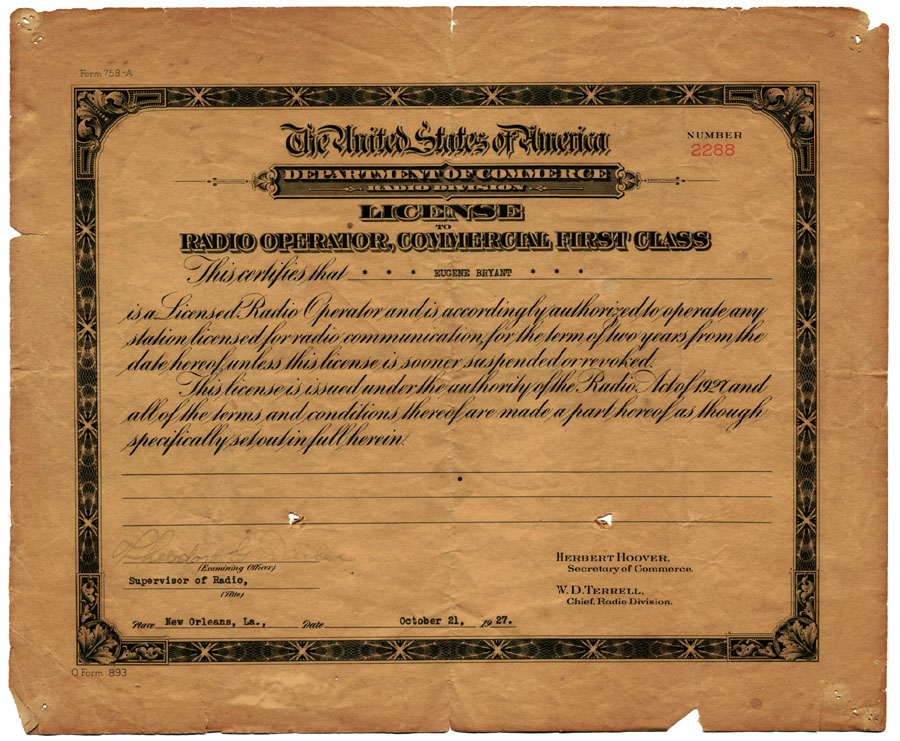 Form 758-A
The United States of America
NUMBER
2288
DEPARTMENT OF COMMERCE
RADIO DIVISION
LICENSE
TO
RADIO OPERATOR, COMMERCIAL FIRST CLASS
This certifies that * * * EUGENE BRYANT * * *
is a Licensed Radio Operator and is accordingly authorized to operate any
station licensed for radio communication, for the term of two years from the
date hereof, unless this license is sooner suspended or revoked.
This license is issued under the authority of the Radio Act of 1927 and
all of the terms and conditions thereof are made a part hereof as though
specifically set out in full herein.
Theodore G.
(Examining Officer)
Supervisor of Radio,
(Title)
HERBERT HOOVER,
Secretary of Commerce.
W. D. TERRELL,
Chief, Radio Division.
Place New Orleans, La., Date October 21, 1927.
O Form 893